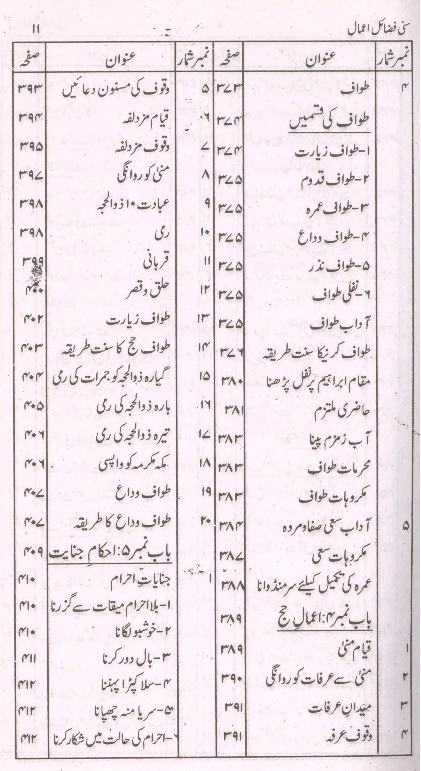 سنی فضائل اعمال ۱۱
نمبر شمار عنوان صفحہ
۴ طواف ۳۷۳
طواف کی قسمیں ۳۷۴
۱- طواف زیارت ۳۷۴
۲- طواف قدوم ۳۷۵
۳- طواف عمرہ ۳۷۵
۴- طواف وداع ۳۷۵
۵- طواف نذر ۳۷۵
۶- نفلی طواف ۳۷۵
آداب طواف ۳۷۵
طواف کرنیکا سنت طریقہ ۳۷۶
مقام ابراہیم پر نفل پڑھنا ۳۸۰
حاضری ملتزم ۳۸۱
آب زمزم پینا ۳۸۳
محرمات طواف ۳۸۳
مکروہات طواف ۳۸۳
۵ آداب سعی صفا و مروہ ۳۸۴
مکروہات سعی ۳۸۷
عمرہ کی تکمیل کیلئے سر منڈوانا ۳۸۸
باب نمبر ۴: اعمالِ حج ۳۸۹
۱ قیام منیٰ ۳۸۹
۲ منیٰ سے عرفات کو روانگی ۳۹۰
۳ میدانِ عرفات ۳۹۱
۴ وقوف عرفہ ۳۹۱
نمبر شمار عنوان صفحہ
۵ وقوف کی مسنون دعائیں ۳۹۳
۶ قیام مزدلفہ ۳۹۴
۷ وقوف مزدلفہ ۳۹۵
۸ منیٰ کو روانگی ۳۹۷
۹ عبادت ۱۰ ذوالحجہ ۳۹۸
۱۰ رمی ۳۹۸
۱۱ قربانی ۳۹۹
۱۲ حلق و قصر ۴۰۰
۱۳ طواف زیارت ۴۰۲
۱۴ طواف حج کا سنت طریقہ ۴۰۳
۱۵ گیارہ ذوالحجہ کو جمرات کی رمی ۴۰۴
۱۶ بارہ ذوالحجہ کی رمی ۴۰۵
۱۷ تیرہ ذوالحجہ کی رمی ۴۰۶
۱۸ مکہ مکرمہ کو واپسی ۴۰۶
۱۹ طواف وداع ۴۰۷
۲۰ طواف وداع کا طریقہ ۴۰۷
باب نمبر ۵: احکامِ جنایت ۴۰۹
۱ جنایاتِ احرام ۴۱۰
۱- بلا احرام میقات سے گزرنا ۴۱۰
۲- خوشبو لگانا ۴۱۰
۳- بال دور کرنا ۴۱۱
۴- سلا کپڑا پہننا ۴۱۲
۵- سر یا منہ چھپانا ۴۱۲
۶- احرام کی حالت میں شکار کرنا ۴۱۲